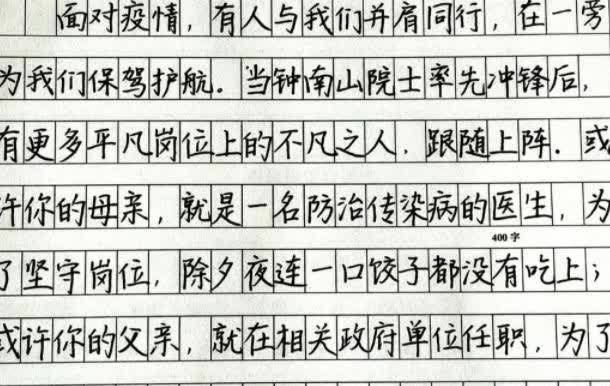 面对疫情，有人与我们并肩同行，在一旁
为我们保驾护航。当钟南山院士率先冲锋后，
有更多平凡岗位上的不凡之人，跟随上阵．或
许你的母亲，就是一名防治传染病的医生，为
400字
了坚守岗位，除夕夜连一口饺子都没有吃上；
或许你的父亲，就在相关政府单位任职，为了